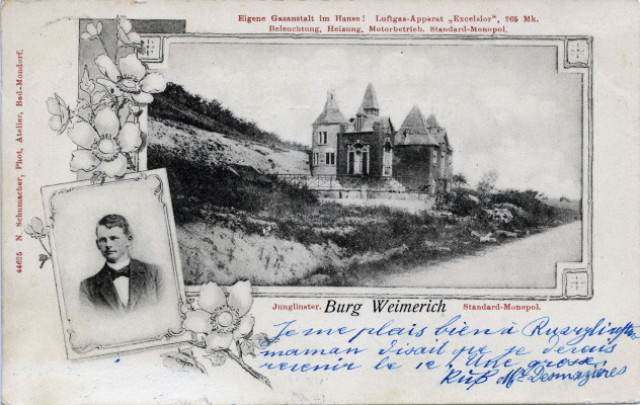 Eigene Gasanstalt im Hause! Luftgas-Apparat „Excelsior“, 265 Mk.
Beleuchtung, Heizung, Motorbetrieb. Standard-Monopol.
44625 N. Schumacher, Phot. Atelier, Bad-Mondorf.
Junglinster. Burg Weimerich Standard-Monopol.
Je me plais bien à
maman disait que je devais
revenir le Une
Kuß Mce Desmazières